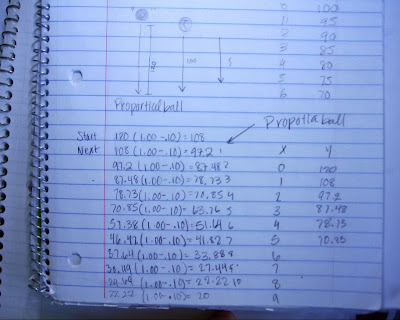 0 100
11 95
2 90
3 85
4 80
5 75
6 70
100 5
Proportical ball
Propotia ball
Start 120 (1.00-.10)=108
Next 108 (1.00-.10)=97.2 1
97.2 (1.00-.10)=87.48 2
87.48 (1.00-.10)=78.73 3
78.73 (1.00-.10)=70.85 4
70.85 (1.00-.10)=63.76 5
57.38 (1.00-.10)=51.64 6
(1.00-.10)=41.82 7
37.64 (1.00-.10)=33.88 8
(1.00-.10)=27.44 9
(1.00-.10)=22.22 10
22.22 (1.00-.10)=20
X Y
0 120
1 108
2 97.2
3 87.48
4 78.73
5 70.85
6
7
8
9